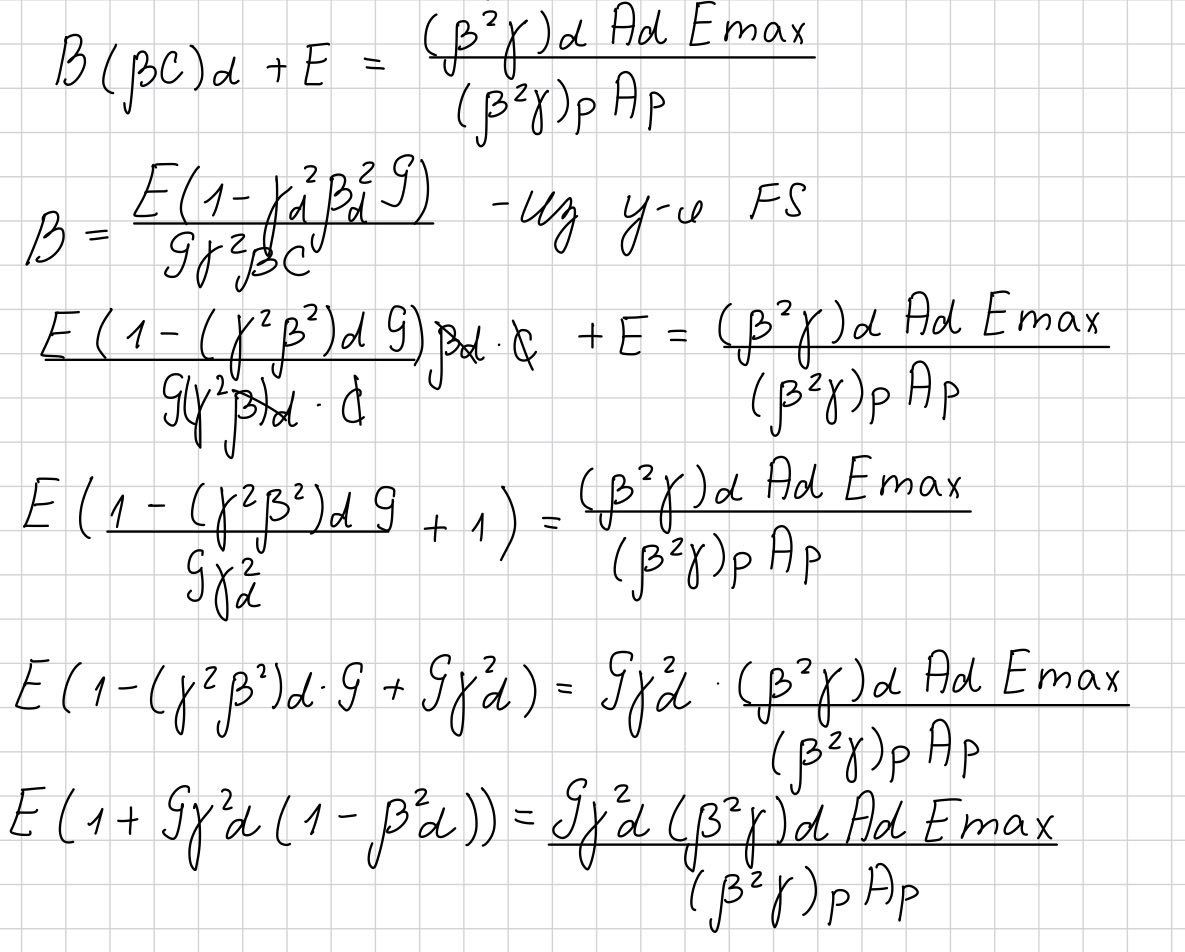 B(βC)d + E = (β²γ)d Ad Emax / (β²γ)p Ap
B = E(1 - γd²βd² G) / Gγ²βC - из у-я FS
E(1 - (γ²β²)d G)βd · C / G(γ²β)d · C + E = (β²γ)d Ad Emax / (β²γ)p Ap
E(1 - (γ²β²)d G / Gγd² + 1) = (β²γ)d Ad Emax / (β²γ)p Ap
E(1 - (γ²β²)d · G + Gγ²d) = Gγ²d · (β²γ)d Ad Emax / (β²γ)p Ap
E(1 + Gγ²d(1 - β²d)) = Gγ²d (β²γ)d Ad Emax / (β²γ)p Ap